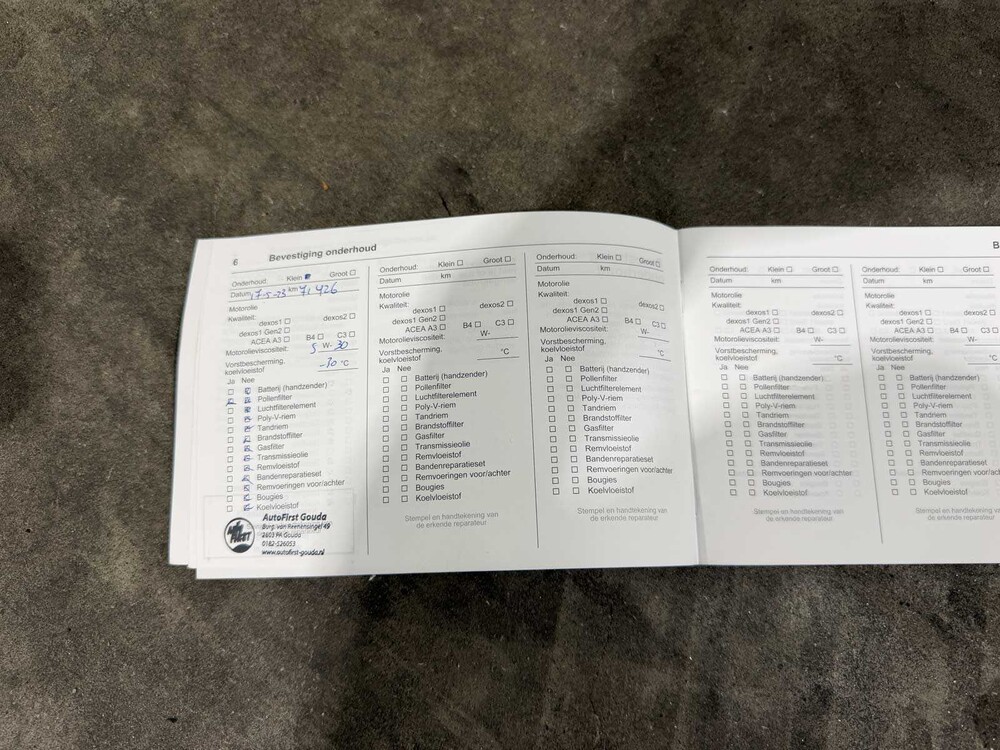 6 Bevestiging onderhoud
Onderhoud: Klein Groot
Datum 17-5-23 km 71426
Motorolie
Kwaliteit:
dexos1 dexos2
dexos1 Gen2
ACEA A3 B4 C3
Motorolieviscositeit: 5 W- 30
Vorstbescherming,
koelvloeistof -30 °C
Ja Nee
Batterij (handzender)
Pollenfilter
Luchtfilterelement
Poly-V-riem
Tandriem
Brandstoffilter
Gasfilter
Transmissieolie
Remvloeistof
Bandenreparatieset
Remvoeringen voor/achter
Bougies
Koelvloeistof
AutoFirst Gouda
Burg. van Reenensingel 49
2803 PA Gouda
0182-526053
www.autofirst-gouda.nl
Onderhoud: Klein Groot
Datum km
Motorolie
Kwaliteit:
dexos1 dexos2
dexos1 Gen2
ACEA A3 B4 C3
Motorolieviscositeit: W-
Vorstbescherming,
koelvloeistof °C
Ja Nee
Batterij (handzender)
Pollenfilter
Luchtfilterelement
Poly-V-riem
Tandriem
Brandstoffilter
Gasfilter
Transmissieolie
Remvloeistof
Bandenreparatieset
Remvoeringen voor/achter
Bougies
Koelvloeistof
Stempel en handtekening van
de erkende reparateur
Onderhoud: Klein Groot
Datum km
Motorolie
Kwaliteit:
dexos1 dexos2
dexos1 Gen2
ACEA A3 B4 C3
Motorolieviscositeit: W-
Vorstbescherming,
koelvloeistof °C
Ja Nee
Batterij (handzender)
Pollenfilter
Luchtfilterelement
Poly-V-riem
Tandriem
Brandstoffilter
Gasfilter
Transmissieolie
Remvloeistof
Bandenreparatieset
Remvoeringen voor/achter
Bougies
Koelvloeistof
Stempel en handtekening van
de erkende reparateur
B
Onderhoud: Klein Groot
Datum km
Motorolie
Kwaliteit:
dexos1 dexos2
dexos1 Gen2
ACEA A3 B4 C3
Motorolieviscositeit: W-
Vorstbescherming,
koelvloeistof °C
Ja Nee
Batterij (handzender)
Pollenfilter
Luchtfilterelement
Poly-V-riem
Tandriem
Brandstoffilter
Gasfilter
Transmissieolie
Remvloeistof
Bandenreparatieset
Remvoeringen voor/achter
Bougies
Koelvloeistof
Stempel en handtekening van
de erkende reparateur
Onderhoud: Klein Groot
Datum km
Motorolie
Kwaliteit:
dexos1 dexos2
dexos1 Gen2
ACEA A3 B4 C3
Motorolieviscositeit: W-
Vorstbescherming,
koelvloeistof °C
Ja Nee
Batterij (handzender)
Pollenfilter
Luchtfilterelement
Poly-V-riem
Tandriem
Brandstoffilter
Gasfilter
Transmissieolie
Remvloeistof
Bandenreparatieset
Remvoeringen voor/acht
Bougies
Koelvloeistof
Stempel en handtekening va
de erkende reparateur